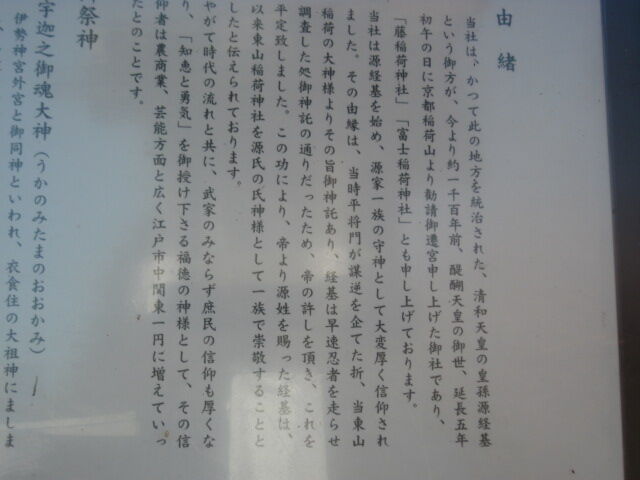 由緒
当社は、かつて此の地方を統治された、清和天皇の皇孫源経基
という御方が、今より約一千百年前、醍醐天皇の御世、延長五年
初午の日に京都稲荷山より勧請御遷宮申し上げた御社であり、
「藤稲荷神社」「富士稲荷神社」とも申し上げております。
当社は源経基を始め、源家一族の守神として大変厚く信仰され
ました。その由縁は、当時平将門が謀逆を企てた折、当東山
稲荷の大神様よりその旨御神託あり、経基は早速忍者を走らせ
調査した処御神託の通りだったため、帝の許しを頂き、これを
平定致しました。この功により、帝より源姓を賜った経基は、
以来東山稲荷神社を源氏の氏神様として一族で崇敬することと
したと伝えられております。
やがて時代の流れと共に、武家のみならず庶民の信仰も厚くな
り、「知恵と勇気」を御授け下さる福徳の神様として、その信
仰者は農商業、芸能方面と広く江戸市中関東一円に増えていっ
たとのことです。
祭神
宇迦之御魂大神(うかのみたまのおおかみ)
伊勢神宮外宮と御同神といわれ、衣食住の大祖神にましま